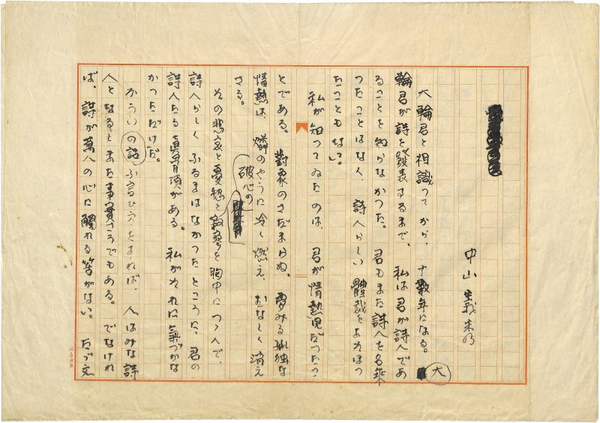 中山義秀
大輪君と相識つてから、十数年になる。大
輪君が詩を発表するまで、私は君が詩人であ
ることを知らなかつた。君もまた詩人を名乗
つたことはなく、詩人らしい體裁をよそほつ
たこともない。
私が知つてゐたのは、君が情熱児だつたこ
とである。對象のさだまらぬ、夢みる孤独な
情熱は、燐のやうに冷く燃え、むなしく消え
さる。
破心の
その悲哀と憂愁と寂寥を胸中につゝんで、
詩人らしくふるまはなかつたところに、君の
詩人たる真骨頂がある。私がそれに気づかな
かつただけだ。
かういふ言ひ方をすれば、人はみな詩
人となるしまた事実さうでもある。でなけれ
ば、詩が萬人の心に觸れる筈がない。たゞ文